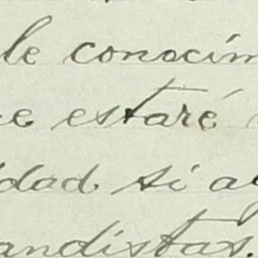 le conocim
e estaré
idad si a
andistas.